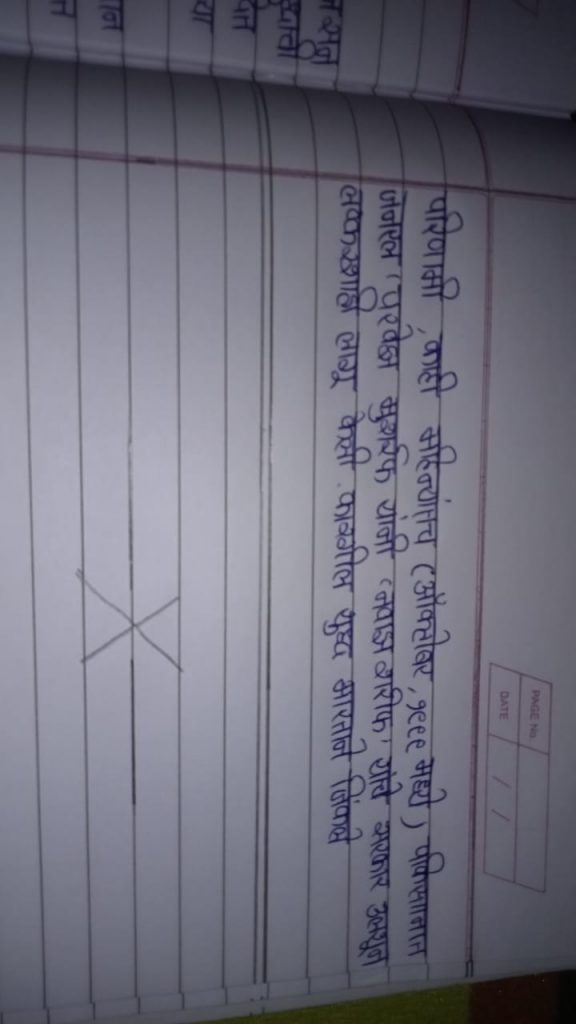 PAGE No.
DATE / /
परिणामी, काही महिन्यांतच (ऑक्टोबर, १९९९ मध्ये) पाकिस्तानात
जनरल 'परवेझ मुशर्रफ यांनी 'नवाझ शरीफ' यांचे सरकार उलथून
लष्करशाही लागू केली. कारगील युद्ध भारताने जिंकले